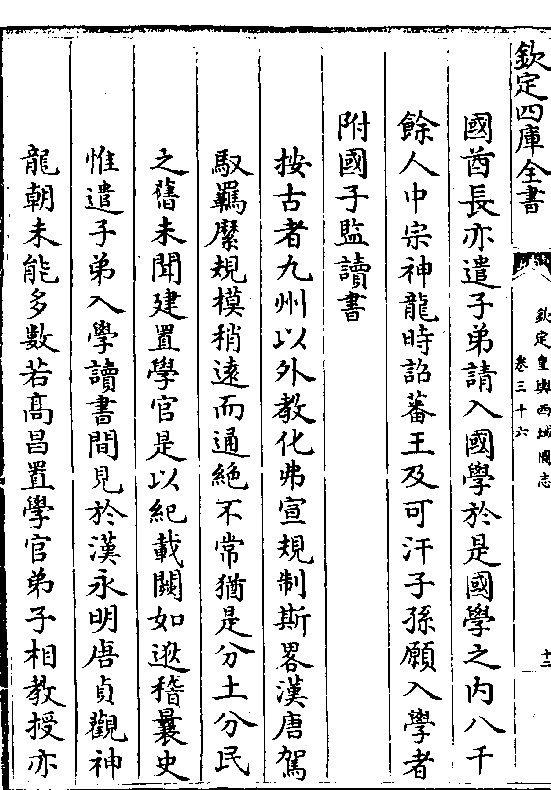 欽定四庫全書
欽定皇輿西域圖志
卷三十六
十二
國酋長亦遣子弟請入國學於是國學之内八千
餘人中宗神龍時詔蕃王及可汗子孫願入學者
附國子監讀書
按古者九州以外教化弗宣規制斯畧漢唐駕
馭羈縻規模稍遠而通絶不常猶是分土分民
之舊未聞建置學官是以紀載闕如逖稽曩史
惟遣子弟入學讀書間見於漢永明唐貞觀神
龍朝未能多數若髙昌置學官弟子相教授亦